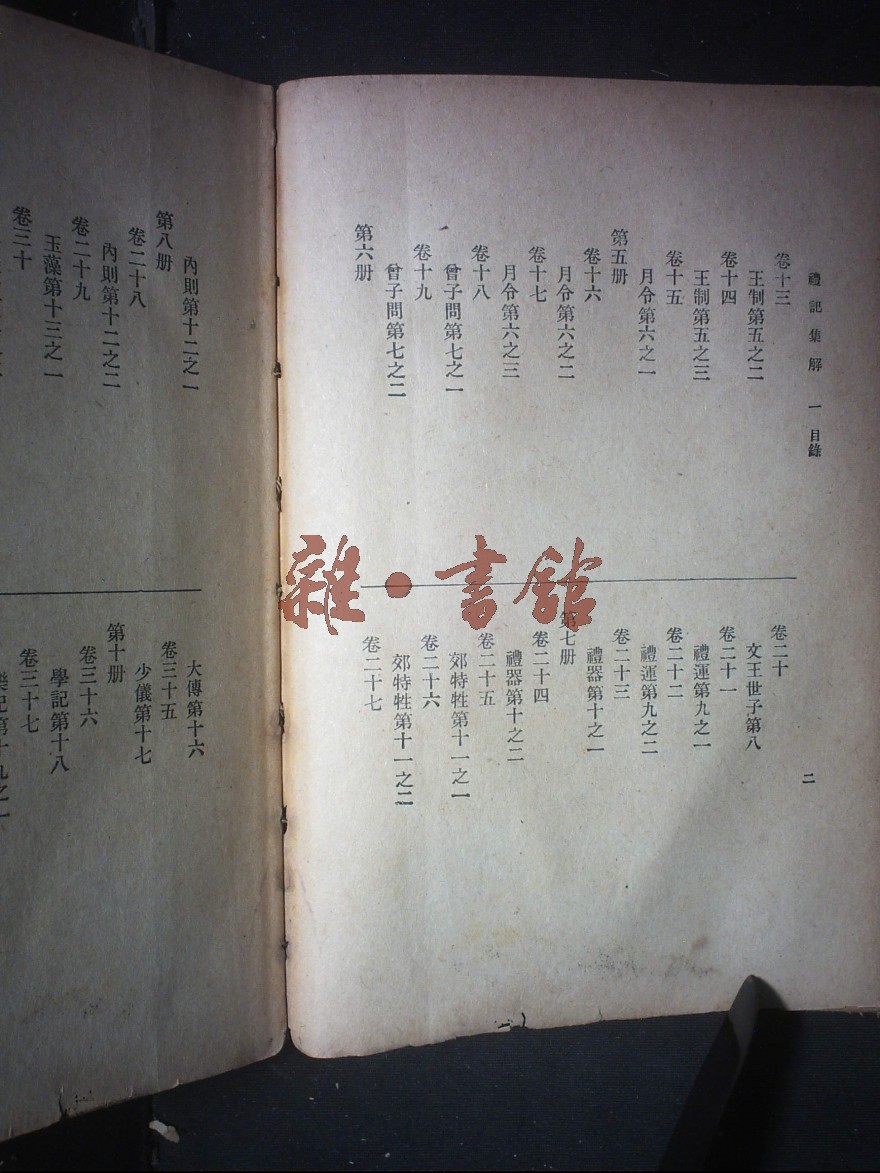 禮記集解 一 目錄
卷十三
王制第五之二
卷十四
王制第五之三
卷十五
月令第六之一
第五册
卷十六
月令第六之二
卷十七
月令第六之三
卷十八
曾子問第七之一
卷十九
曾子問第七之二
第六册
卷二十
文王世子第八
卷二十一
禮運第九之一
卷二十二
禮運第九之二
卷二十三
禮器第十之一
第七册
卷二十四
禮器第十之二
卷二十五
郊特牲第十一之一
卷二十六
郊特牲第十一之二
卷二十七
二
內則第十二之一
第八册
卷二十八
內則第十二之二
卷二十九
玉藻第十三之一
卷三十
大傳第十六
卷三十五
少儀第十七
第十册
卷三十六
學記第十八
卷三十七
樂記第十九之一
雜·書館